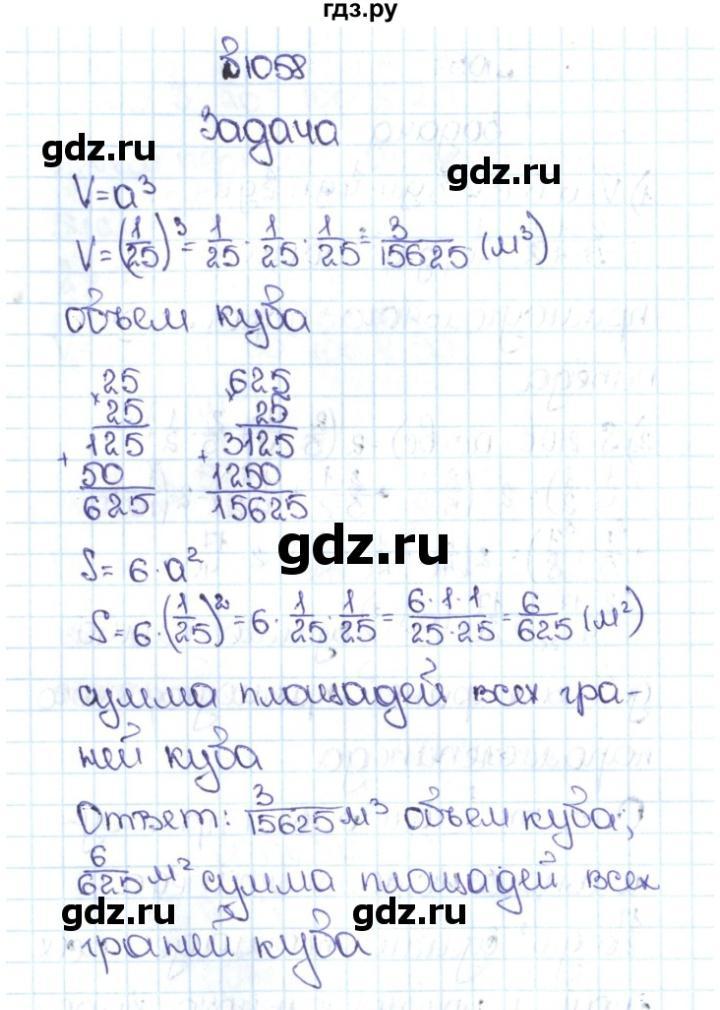 гдз.ру
№1058
Задача
gdz.ru
gdz.ru
V=a³
V=(1/25)³=1/25·1/25·1/25=3/15625 (м³)
объем куба
×25 ×625
25 25
+125 +3125
50 1250
625 15625
gdz.ru
S=6·a²
S=6·(1/25)²=6·1/25·1/25=6·1·1/25·25=6/625 (м²)
сумма площадей всех гра-
ней куба
Ответ: 3/15625 м³ объем куба,
6/625 м² сумма площадей всех
gdz.ru gdz.ru
граней куба